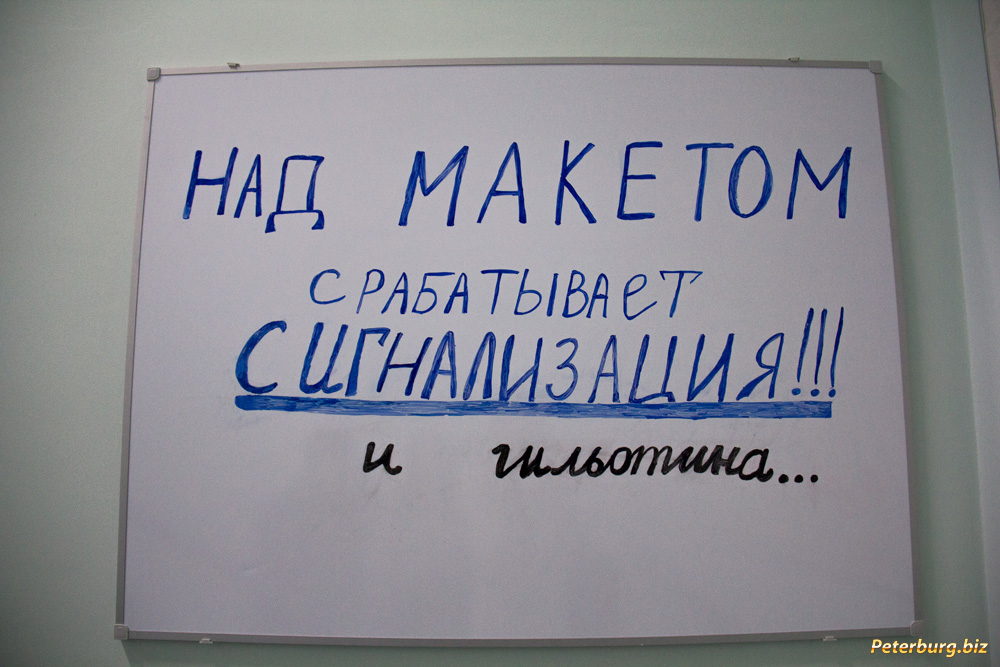 НАД МАКЕТОМ
СРАБАТЫВАеТ
СИГНАЛИЗАЦИЯ!!!
и гильотина...
Peterburg.biz